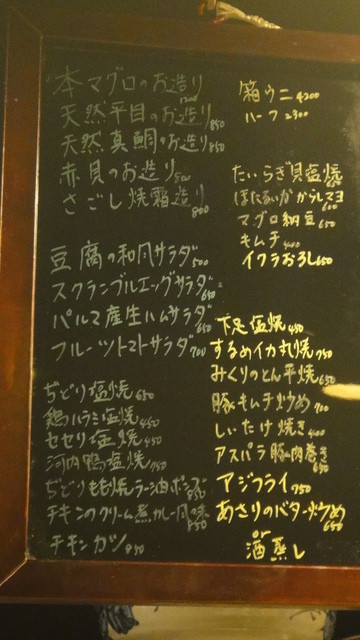 本マグロのお造り
天然平目のお造り 850
天然真鯛のお造り 850
赤貝のお造り
さごし焼霜造り 800
豆腐の和風サラダ 500
スクランブルエッグサラダ 650
パルマ産生ハムサラダ 650
フルーツトマトサラダ 700
ぢどり塩焼 650
鶏ハラミ塩焼 450
セセリ塩焼 450
河内鴨塩焼 750
ぢどりもも焼ラー油ポン酢 850
チキンのクリーム煮カレー風味 850
チキンカツ 850
箱ウニ 4200
ハーフ 2300
たいらぎ貝塩焼
ほたるいか からしマヨ 600
マグロ納豆 650
キムチ 400
イクラおろし 650
下足塩焼 450
するめイカ丸焼 750
みくりのとん平焼 650
豚キムチ炒め 700
しいたけ焼き 400
アスパラ豚肉巻き 650
アジフライ 750
あさりのバター炒め 650
or
酒蒸し